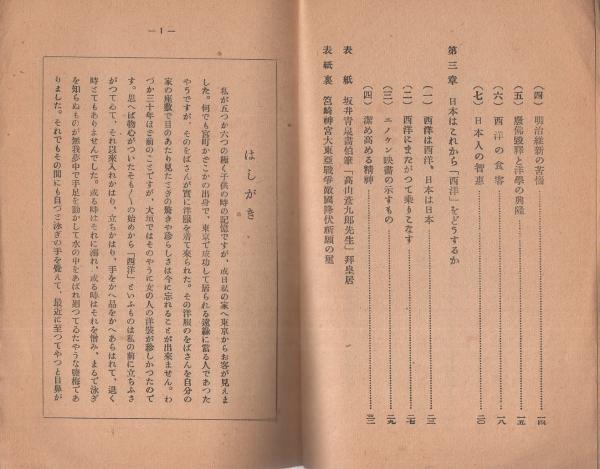 (四) 明治維新の苦惱 一四
(五) 廢佛毀釋と洋學の興隆 一五
(六) 西洋の食客 一八
(七) 日本人の智惠 二〇
第三章 日本はこれから「西洋」をどうするか
(一) 西洋は西洋、日本は日本 二三
(二) 西洋にまたがつて乗りこなす 二七
(三) エノケン映畵の示すもの 二九
(四) 潔め高める精神 三一
表紙 坂井青泉畵伯筆「高山彥九郎先生」拜皇居
表紙裏 筥崎神宮大東亞戰爭敵國降伏祈願の圖
— 1 —
はしがき
私が五つか六つの極く子供の時の記憶ですが、或日私の家へ東京からお客が見えま
した。何でも宮町かどこかの出身で、東京で成功して居られる遠緣に當る人であつた
やうですが、そのをばさんが實に洋服を着て來られた。その洋服のをばさんを自分の
家の座敷で目のあたり見たときの驚きや珍らしさは今に忘れることが出來ません。わ
づか三十年ほど前のことですが、大垣ではそのやうに女の人の洋裝が珍しかつたので
す。思へば物心がついたそも〳〵の始めから「西洋」といふものは私の前に立ちふさ
がつてゐて、それ以來入れかはり、立ちかはり、手をかへ品をかへあらはれて、退く
時とてもありませんでした。或る時はそれに溺れ、或る時はそれを憎み、まるで泳ぎ
を知らぬものが無我夢中で手足を動かして水の中をあばれ廻つてゐたやうな鹽梅であ
りました。それでもその間にも自つと泳ぎの手を覺えて、最近に至つてやつと目鼻が